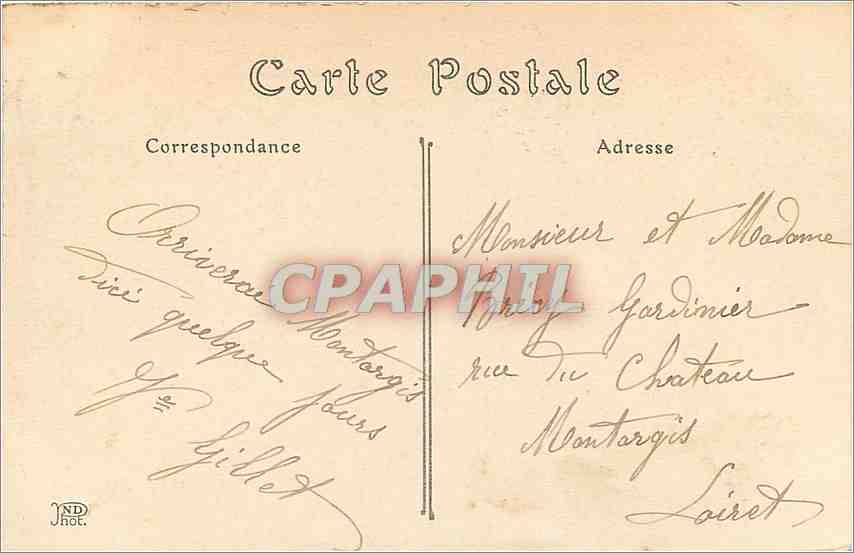 Carte Postale
Correspondance
Arriverai Montargis
Dici quelque jours
Gillet
ND
Phot.
Adresse
Monsieur et Madame
Brécy Gardinier
rue du Chateau
Montargis
Loiret
CPAPHIL